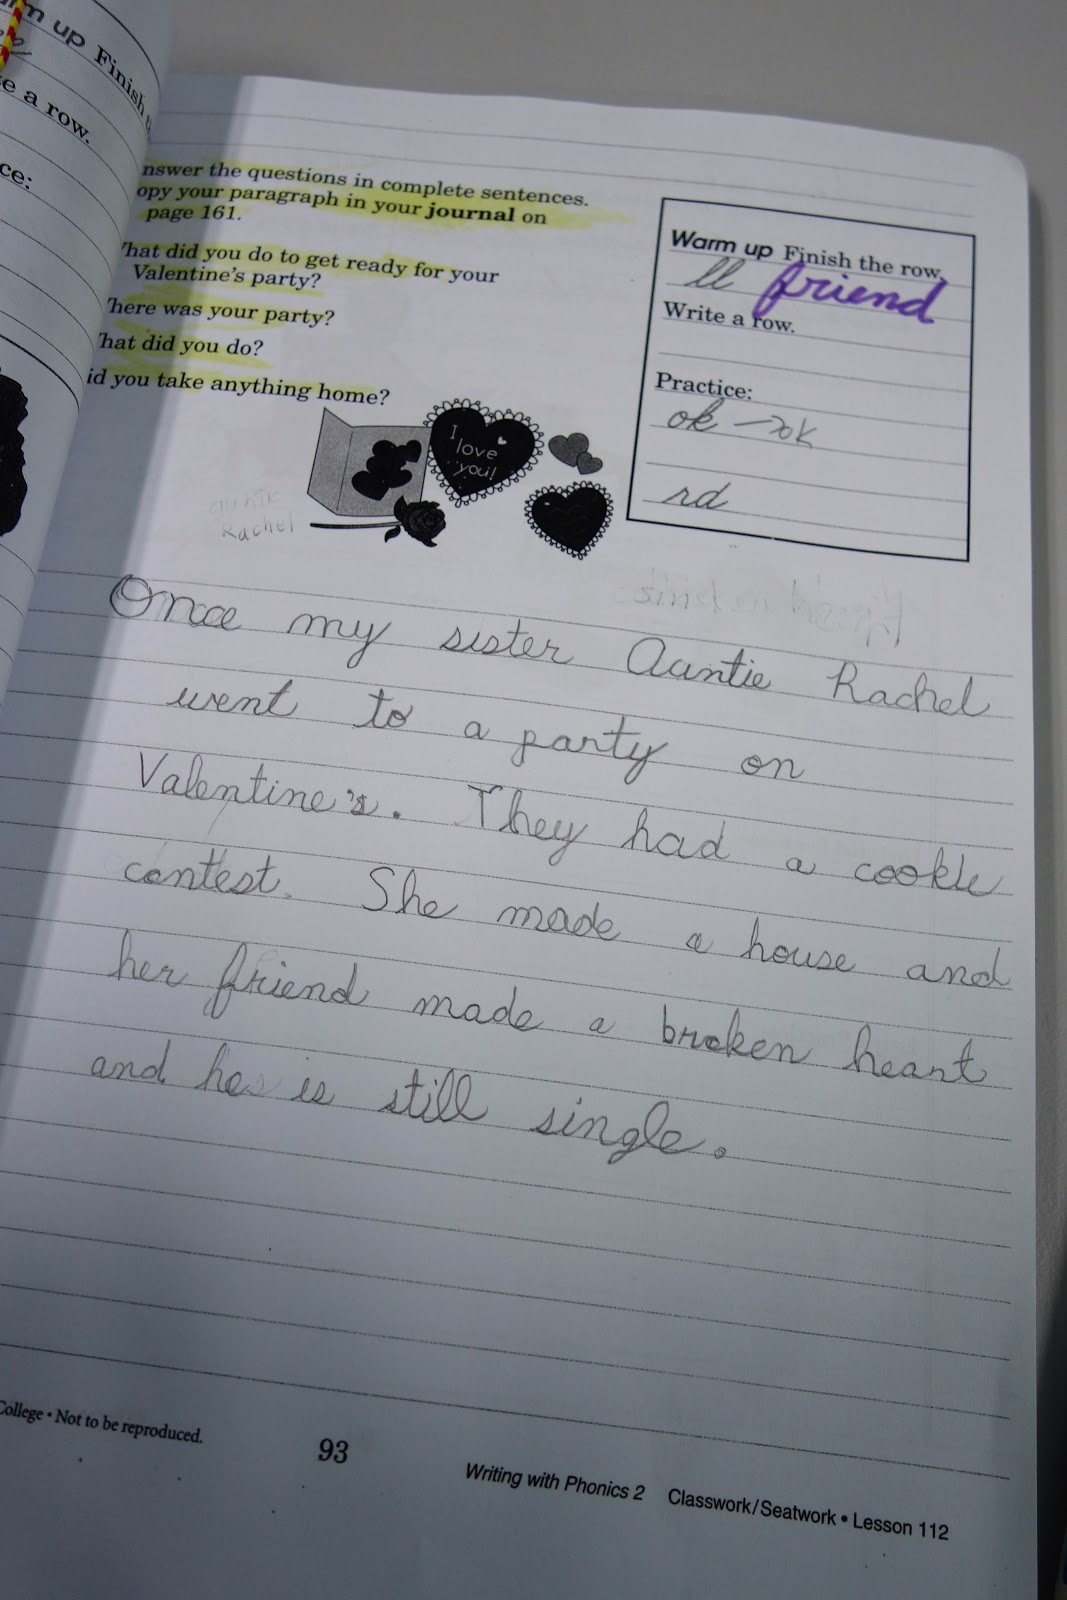 m up Finish t
e a row.
ce:
nswer the questions in complete sentences.
opy your paragraph in your journal on
page 161.
hat did you do to get ready for your
Valentine's party?
here was your party?
hat did you do?
id you take anything home?
Warm up Finish the row.
ll friend
Write a row.
Practice:
ok ok
rd
I
love
you!
auntie
Rachel
Once my sister Auntie Rachel
went to a party on
Valentine's. They had a cookie
contest. She made a house and
her friend made a broken heart
and he is still single.
College • Not to be reproduced.
93
Writing with Phonics 2 Classwork/Seatwork • Lesson 112